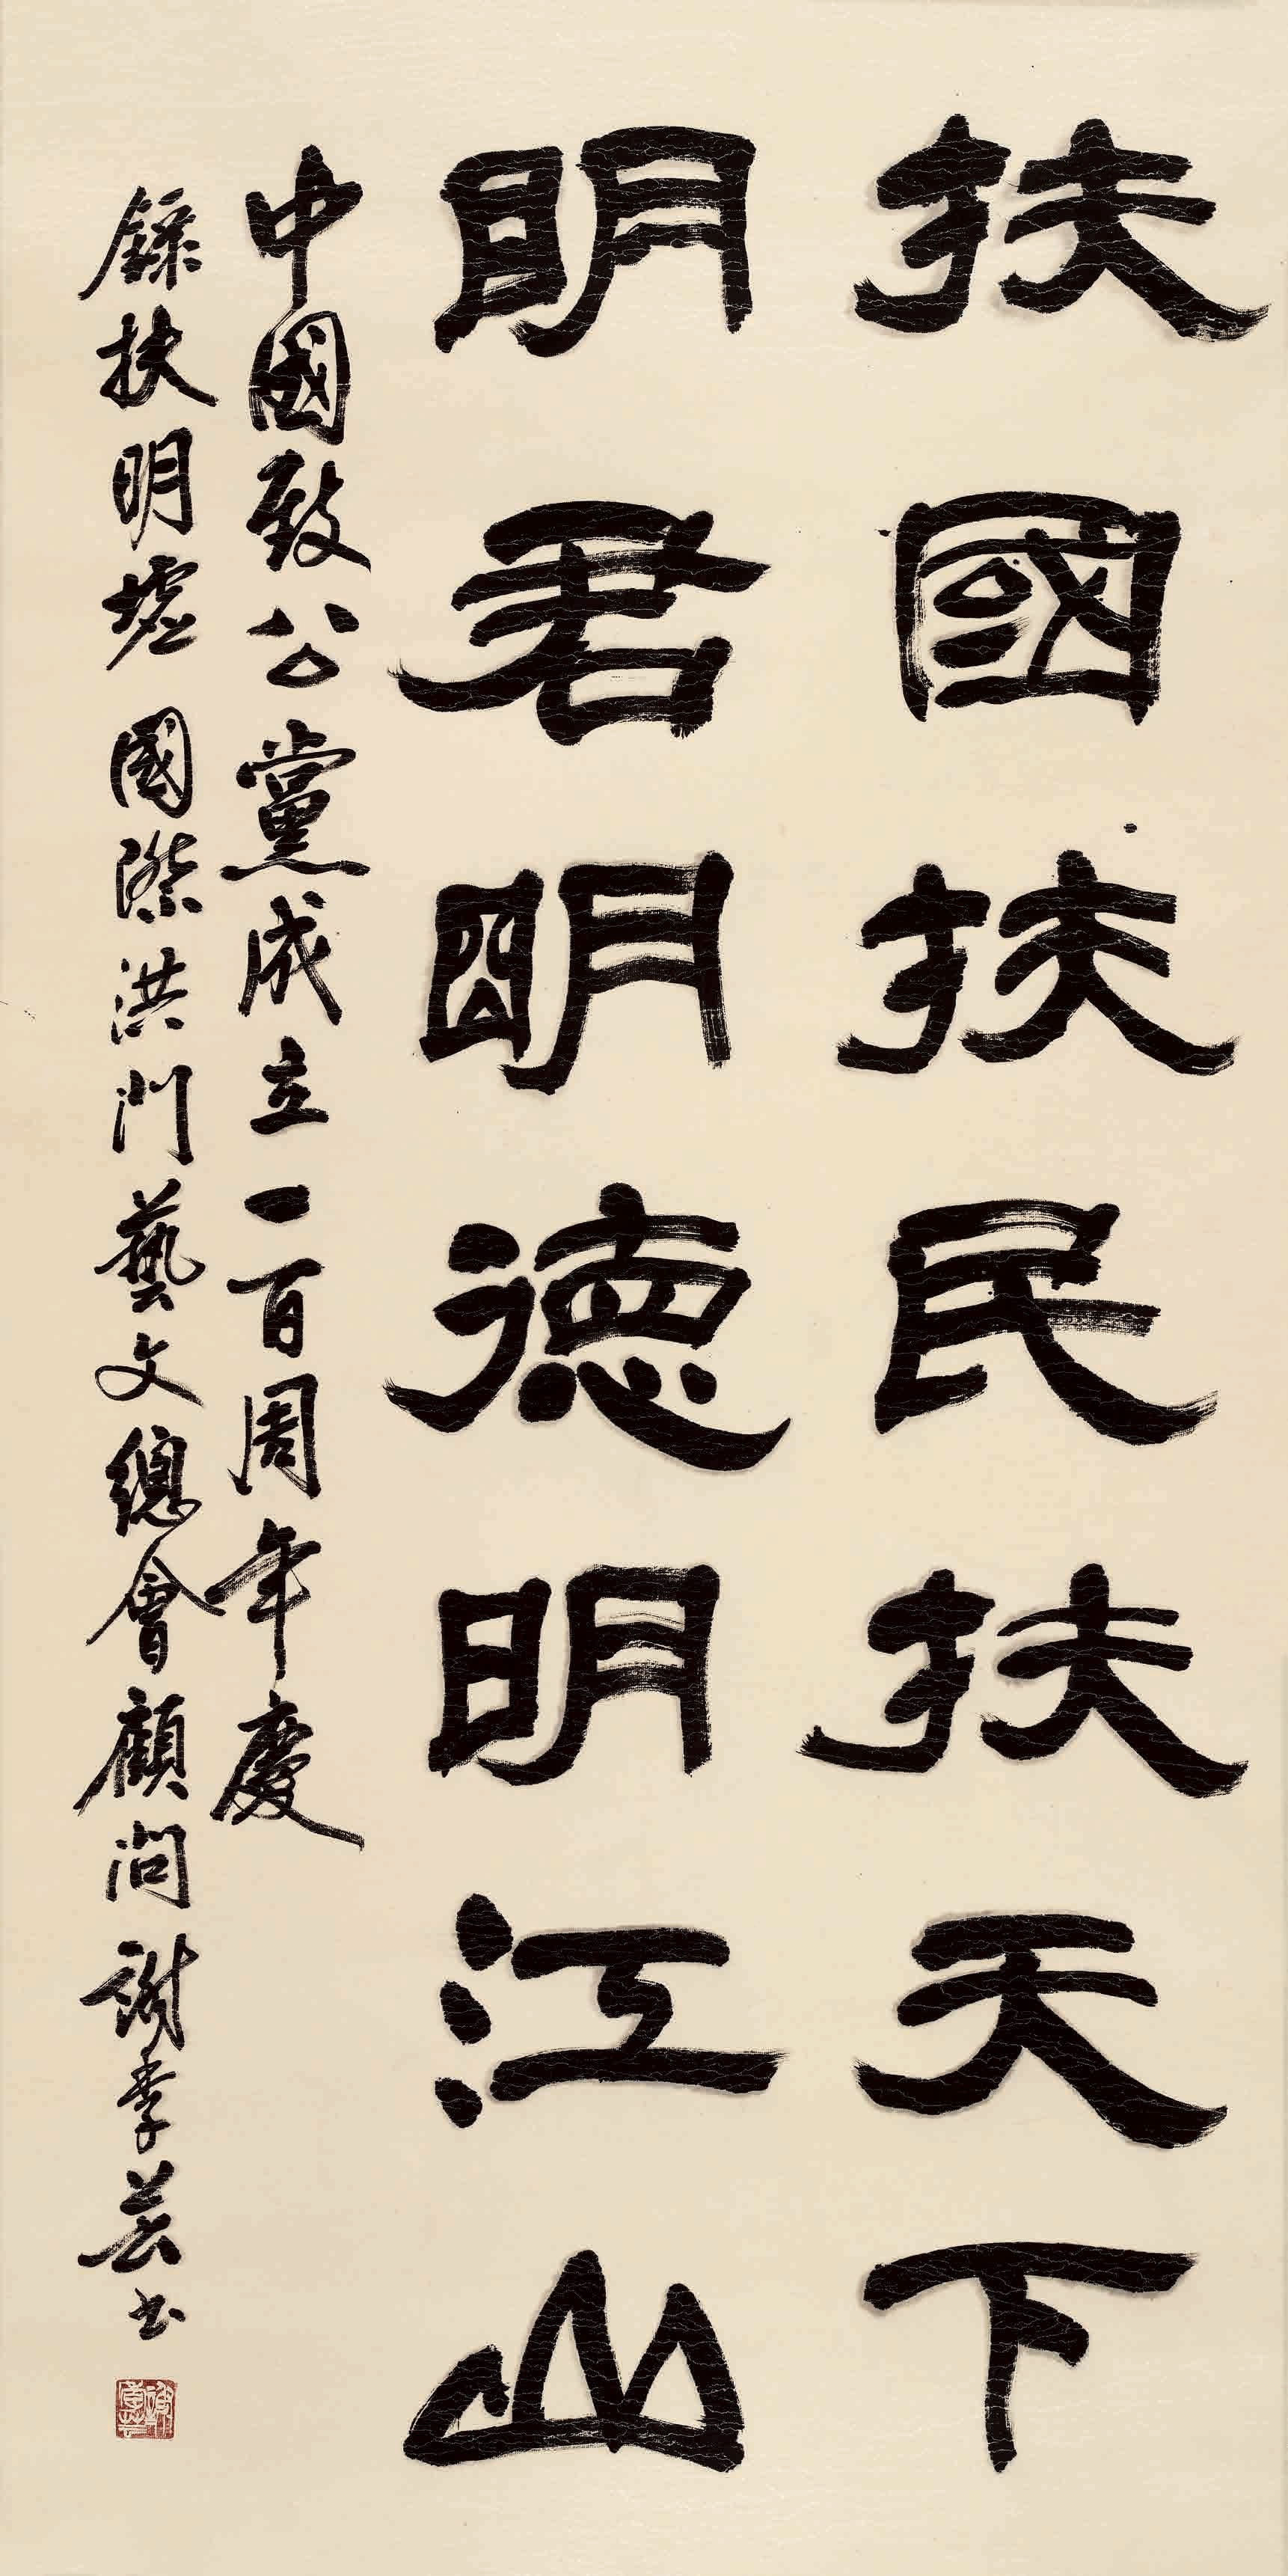 扶國扶民扶天下
明君明德明江山
中國致公黨成立一百周年慶
錄扶明墟 國際洪門藝文總會顧問 謝季芸书